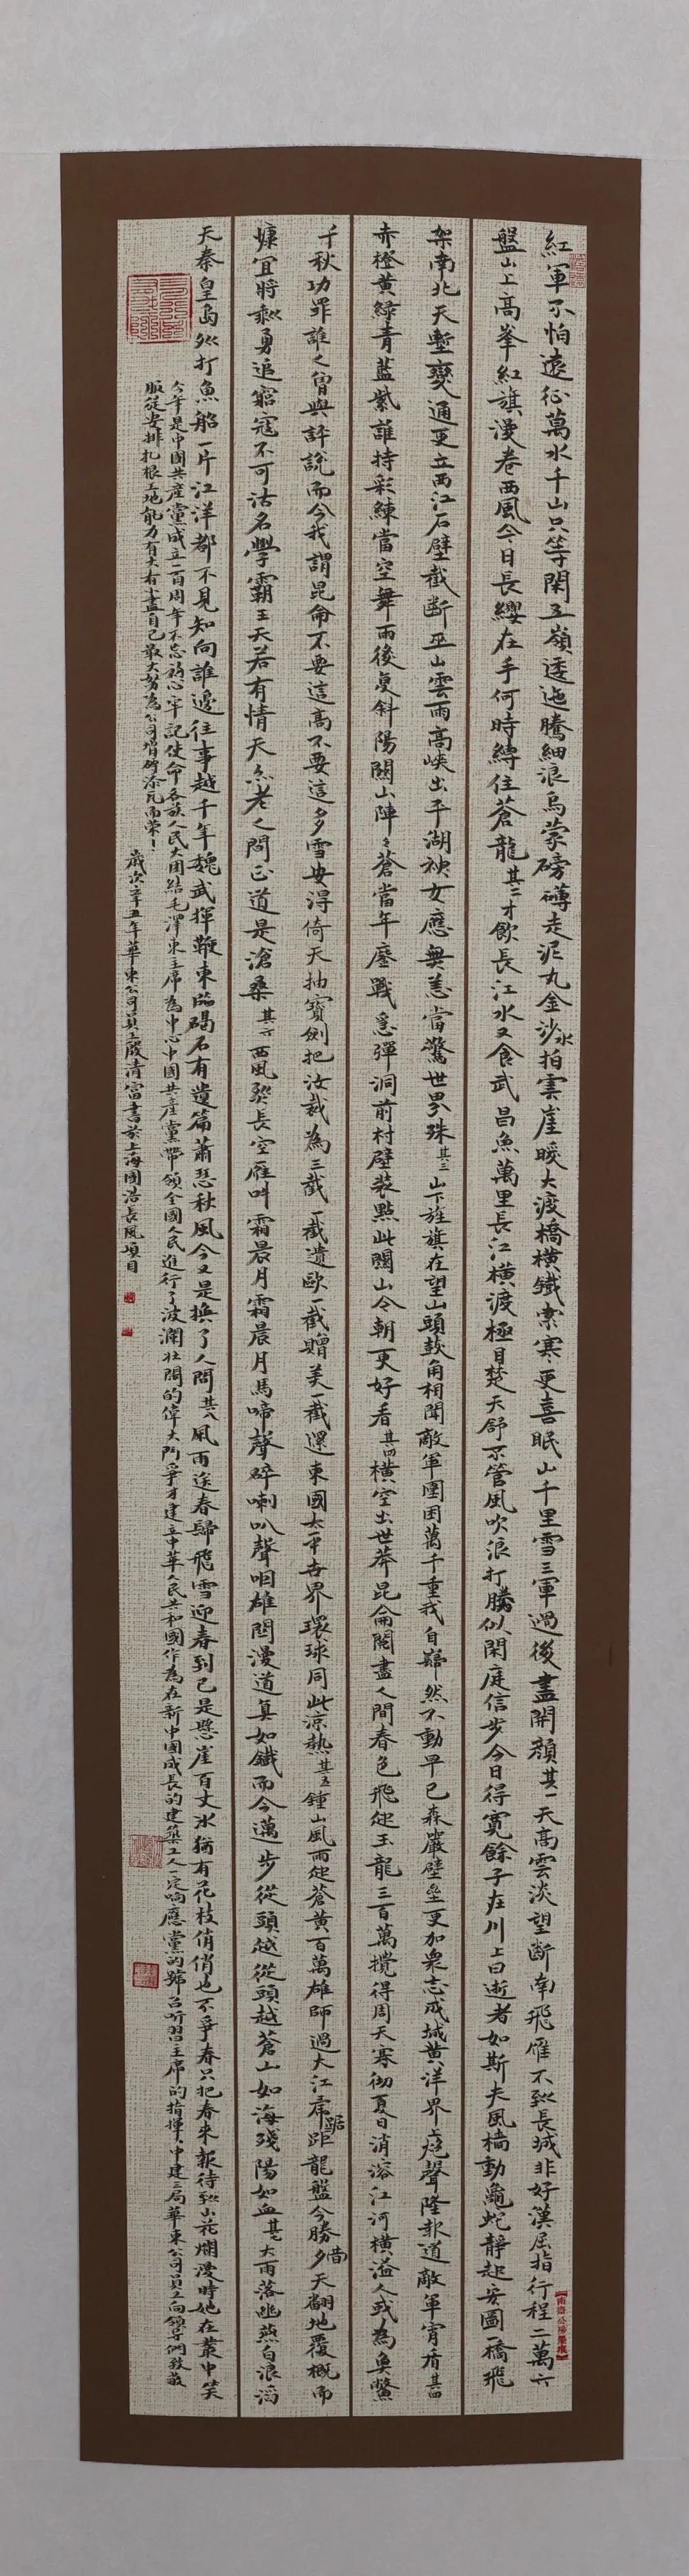 紅軍不怕遠征萬水千山只等閑五嶺逶迤騰細浪烏蒙磅礴走泥丸金沙水拍雲崖暖大渡橋橫鐵索寒更喜岷山千里雪三軍過後盡開顏其一天高雲淡望斷南飛雁不到長城非好漢屈指行程二萬六
盤山上高峯紅旗漫卷西風今日長纓在手何時縛住蒼龍其二才飲長江水又食武昌魚萬里長江橫渡極目楚天舒不管風吹浪打騰似閑庭信步今日得寬餘子在川上曰逝者如斯夫風檣動龜蛇靜起宏圖一橋飛
架南北天塹變通更立西江石壁截斷巫山雲雨高峽出平湖神女應無恙當驚世界殊其三山下旌旗在望山頭鼓角相聞敵軍圍困萬千重我自巋然不動早已森嚴壁壘更加衆志成城黃洋界上炮聲隆報道敵軍宵盾其四
赤橙黃綠青藍紫誰持彩練當空舞雨後復斜陽關山陣々蒼當年鏖戰急彈洞前村壁裝點此關山今朝更好看其四橫空出世莽昆侖閱盡人間春色飛起玉龍三百萬攪得周天寒徹夏日消溶江河橫溢人或為魚鱉
千秋功罪誰人曾與評說而今我謂昆侖不要這高不要這多雪安得倚天抽寶劍把汝裁為三截一截遺歐一截贈美一截還東國太平世界環球同此涼熱其五鍾山風雨起蒼黃百萬雄師過大江虎踞距龍盤今勝夕昔天翻地覆概而
慷宜將剩勇追窮寇不可沽名學霸王天若有情天亦老人間正道是滄桑其六西風烈長空雁叫霜晨月霜晨月馬啼聲碎喇叭聲咽雄關漫道真如鐵而今邁步從頭越從頭越蒼山如海殘陽如血其七大雨落幽燕白浪滔
天秦皇島外打魚船一片江洋都不見知向誰邊往事越千年魏武揮鞭東臨碣石有遺篇蕭瑟秋風今又是換了人間其八風雨送春歸飛雪迎春到已是懸崖百丈冰猶有花枝俏俏也不爭春只把春來報待到山花爛漫時她在叢中笑
今年是中國共產黨成立一百周年不忘初心牢記使命各族人民大團結毛澤東主席為中心中國共產黨帶領全國人民進行了波瀾壯闊的偉大鬥爭才建立中華人民共和國作為在新中國成長的建築工人一定响應黨的號召听習主席的指揮中建三局華東公司員工向領導們致敬
服從安排扎根工地能力有大有小盡自己最大努為公司增磚添瓦而榮！
歲次辛丑年華東公司員工殷清富書於上海國浩長風項目